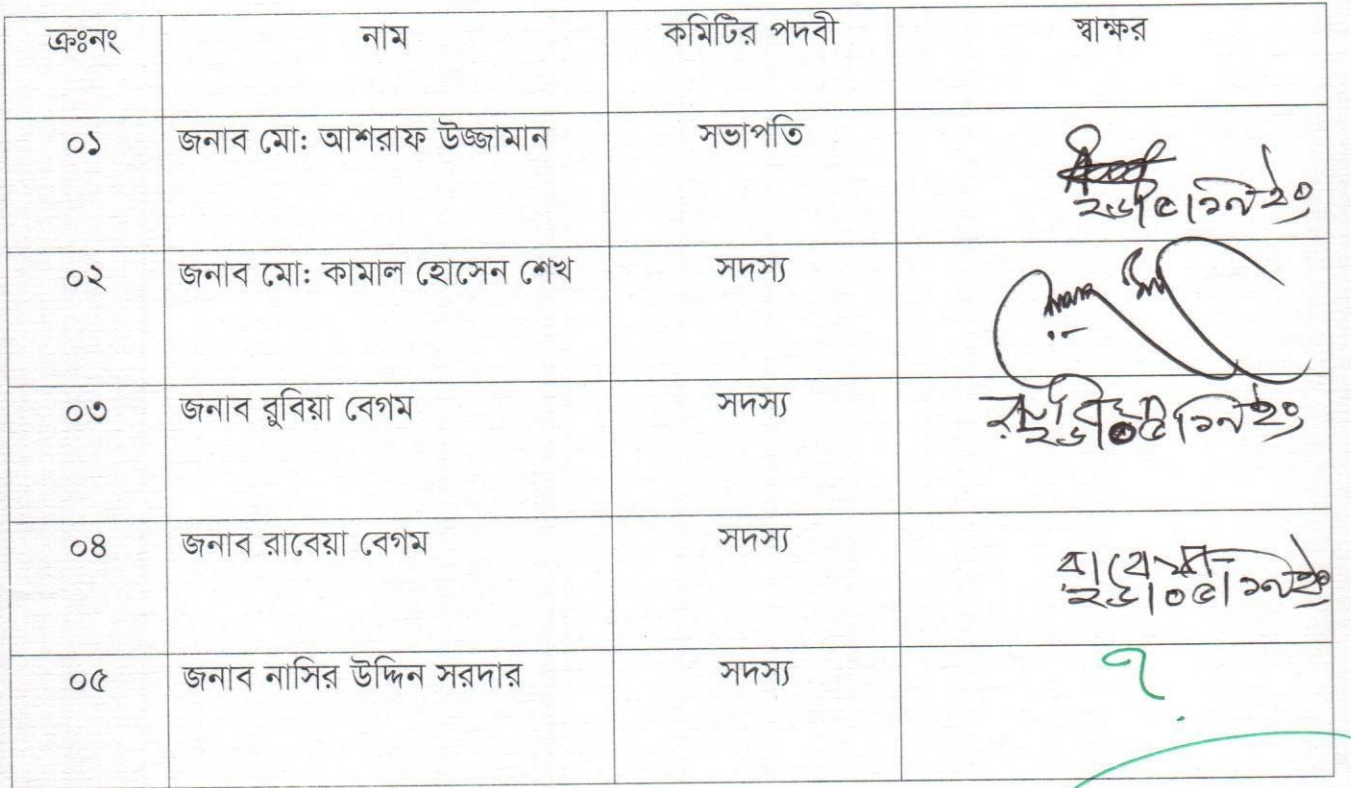 ক্রঃনং নাম কমিটির পদবী স্বাক্ষর
০১ জনাব মো: আশরাফ উজ্জামান সভাপতি
২৬/৫/১৯ ইং
০২ জনাব মো: কামাল হোসেন শেখ সদস্য
০৩ জনাব রুবিয়া বেগম সদস্য রুবিয়া
২৬/০৫/১৯ ইং
০৪ জনাব রাবেয়া বেগম সদস্য রাবেয়া
২৬/০৫/১৯ ইং
০৫ জনাব নাসির উদ্দিন সরদার সদস্য ?